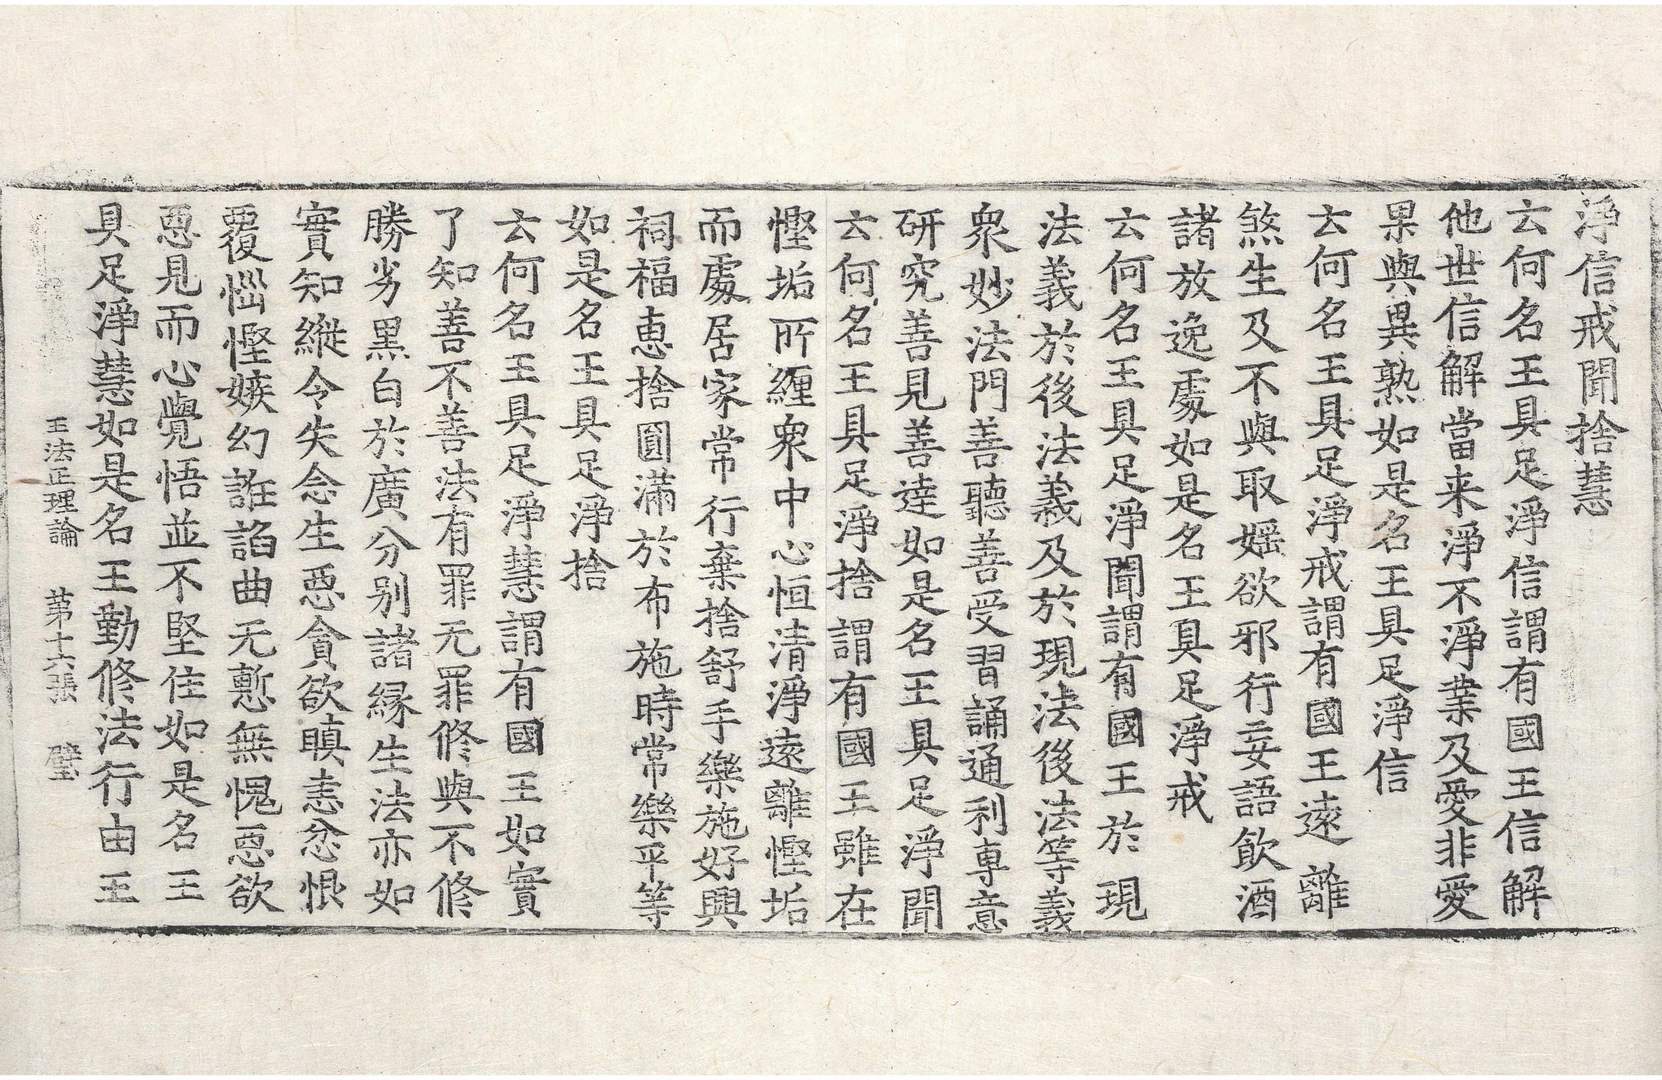 淨信戒聞捨慧
云何名王具足淨信謂有國王信解
他世信解當来淨不淨業及愛非愛
果與異熟如是名王具足淨信
云何名王具足淨戒謂有國王遠離
煞生及不與取婬欲邪行妄語飲酒
諸放逸處如是名王具足淨戒
云何名王具足淨聞謂有國王於現
法義於後法義及於現法後法等義
衆妙法門善聽善受習誦通利專意
研究善見善達如是名王具足淨聞
云何名王具足淨捨謂有國王雖在
慳垢所纏衆中心恒清淨遠離慳垢
而處居家常行棄捨舒手樂施好興
祠福惠捨圓滿於布施時常樂平等
如是名王具足淨捨
云何名王具足淨慧謂有國王如實
了知善不善法有罪无罪修與不修
勝劣黑白於廣分別諸緣生法亦如
實知縱令失念生惡貪欲瞋恚忿恨
覆惱慳嫉幻誑諂曲无慙無愧惡欲
惡見而心覺悟並不堅住如是名王
具足淨慧如是名王勤修法行由王
王法正理論 第十六張 璧